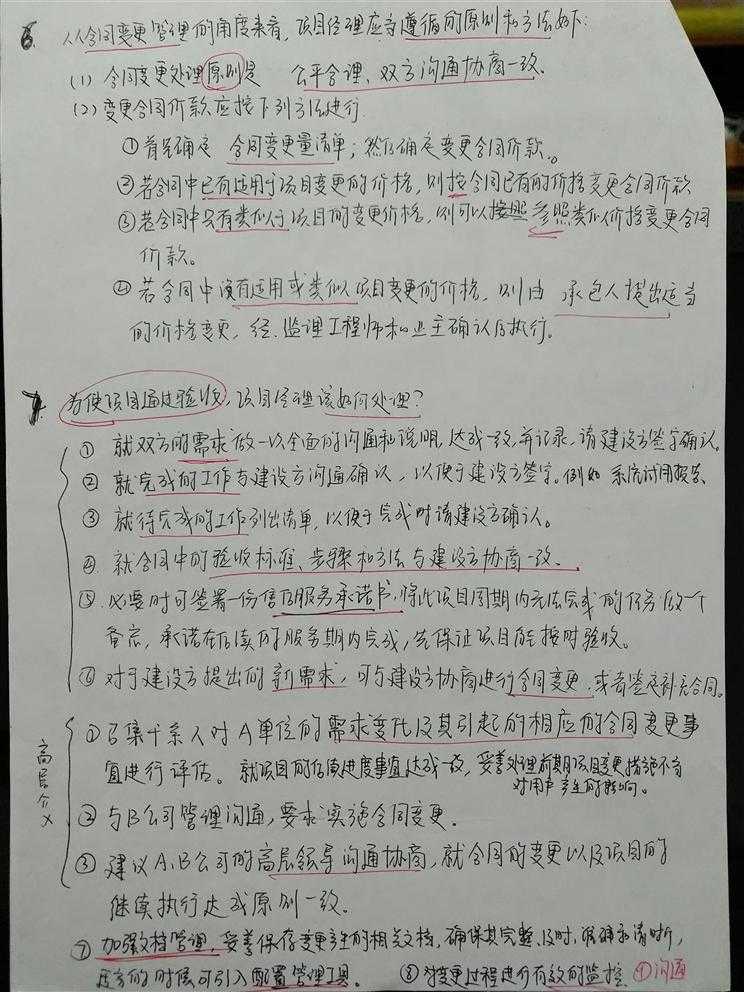 6. 从合同变更管理的角度来看，项目经理应当遵循的原则和方法如下：
(1) 合同变更处理原则是 公平合理、双方沟通协商一致.
(2) 变更合同价款应按下列方法进行
①首先确定 合同变更量清单；然后确定变更合同价款。
②若合同中已有适用于项目变更的价格，则按合同已有的价格变更合同价款
③若合同中只有类似于项目的变更价格，则可以按照参照类似价格变更合同
价款。
④若合同中没有适用或类似项目变更的价格，则由 承包人提出适当
的价格变更，经.监理工程师和业主确认后执行。
7. 为使项目通过验收，项目经理该如何处理？
① 就双方的需求做一次全面的沟通和说明，达成一致，并记录，请建设方签字确认。
② 就完成的工作与建设方沟通确认，以便于建设方签字。例如 系统试用报告、
③ 就待完成的工作列出清单，以便于完成时请建设方确认。
④ 就合同中的验收标准、步骤和方法与建设方协商一致.
⑤ 必要时可签署一份售后服务承诺书，将此项目周期内无法完成的任务做一个
备忘，承诺在后续的服务期内完成，先保证项目能按时验收。
⑥ 对于建设方提出的新需求，可与建设方协商进行合同变更，或者签定补充合同。
高层介入
① 召集干系人对A单位的需求变化及其引起的相应的合同变更事
宜进行评估。就项目的后续进度事宜达成一致，妥善处理前期项目变更措施不当
对用户产生的影响。
② 与B公司管理沟通，要求实施合同变更.
③ 建议A、B公司的高层领导沟通协商，就合同的变更以及项目的
继续执行达成原则一致.
⑦ 加强文档管理，妥善保存变更产生的相关文档，确保其完整、及时、准确和清晰，
适当的时候可引入配置管理工具。 ⑧ 对变更过程进行有效的监控. ⑨沟通